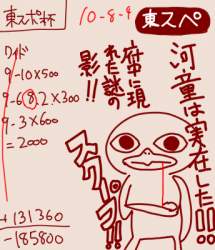 東スポ杯
10-8-9
東スペ
河童は実在した!!!
府中に現
れた謎の
影!!
スクープ!!
ワイド
9-10×500
9-6,8,2×300
9-3×600
=2000
+131360
-185800